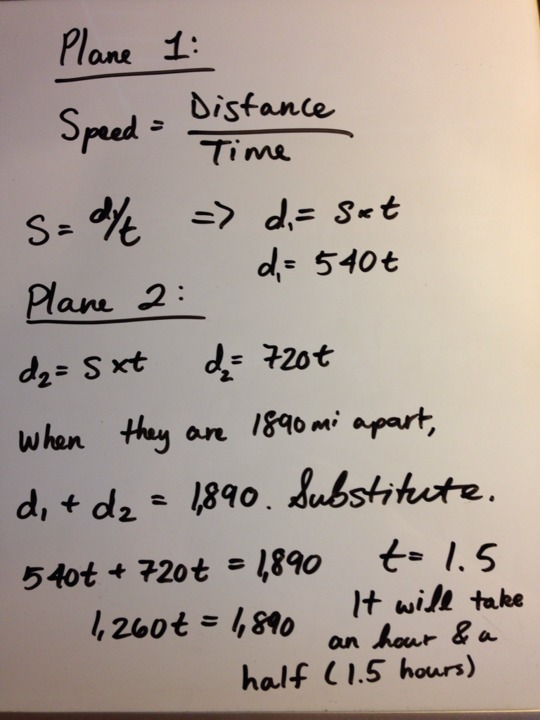 Plane 1:
Speed = Distance
Time
S = d/t => d₁ = s × t
d₁ = 540t
Plane 2:
d₂ = S × t d₂ = 720t
When they are 1890 mi apart,
d₁ + d₂ = 1,890. Substitute.
540t + 720t = 1,890 t = 1.5
1,260t = 1,890 It will take
an hour & a
half (1.5 hours)